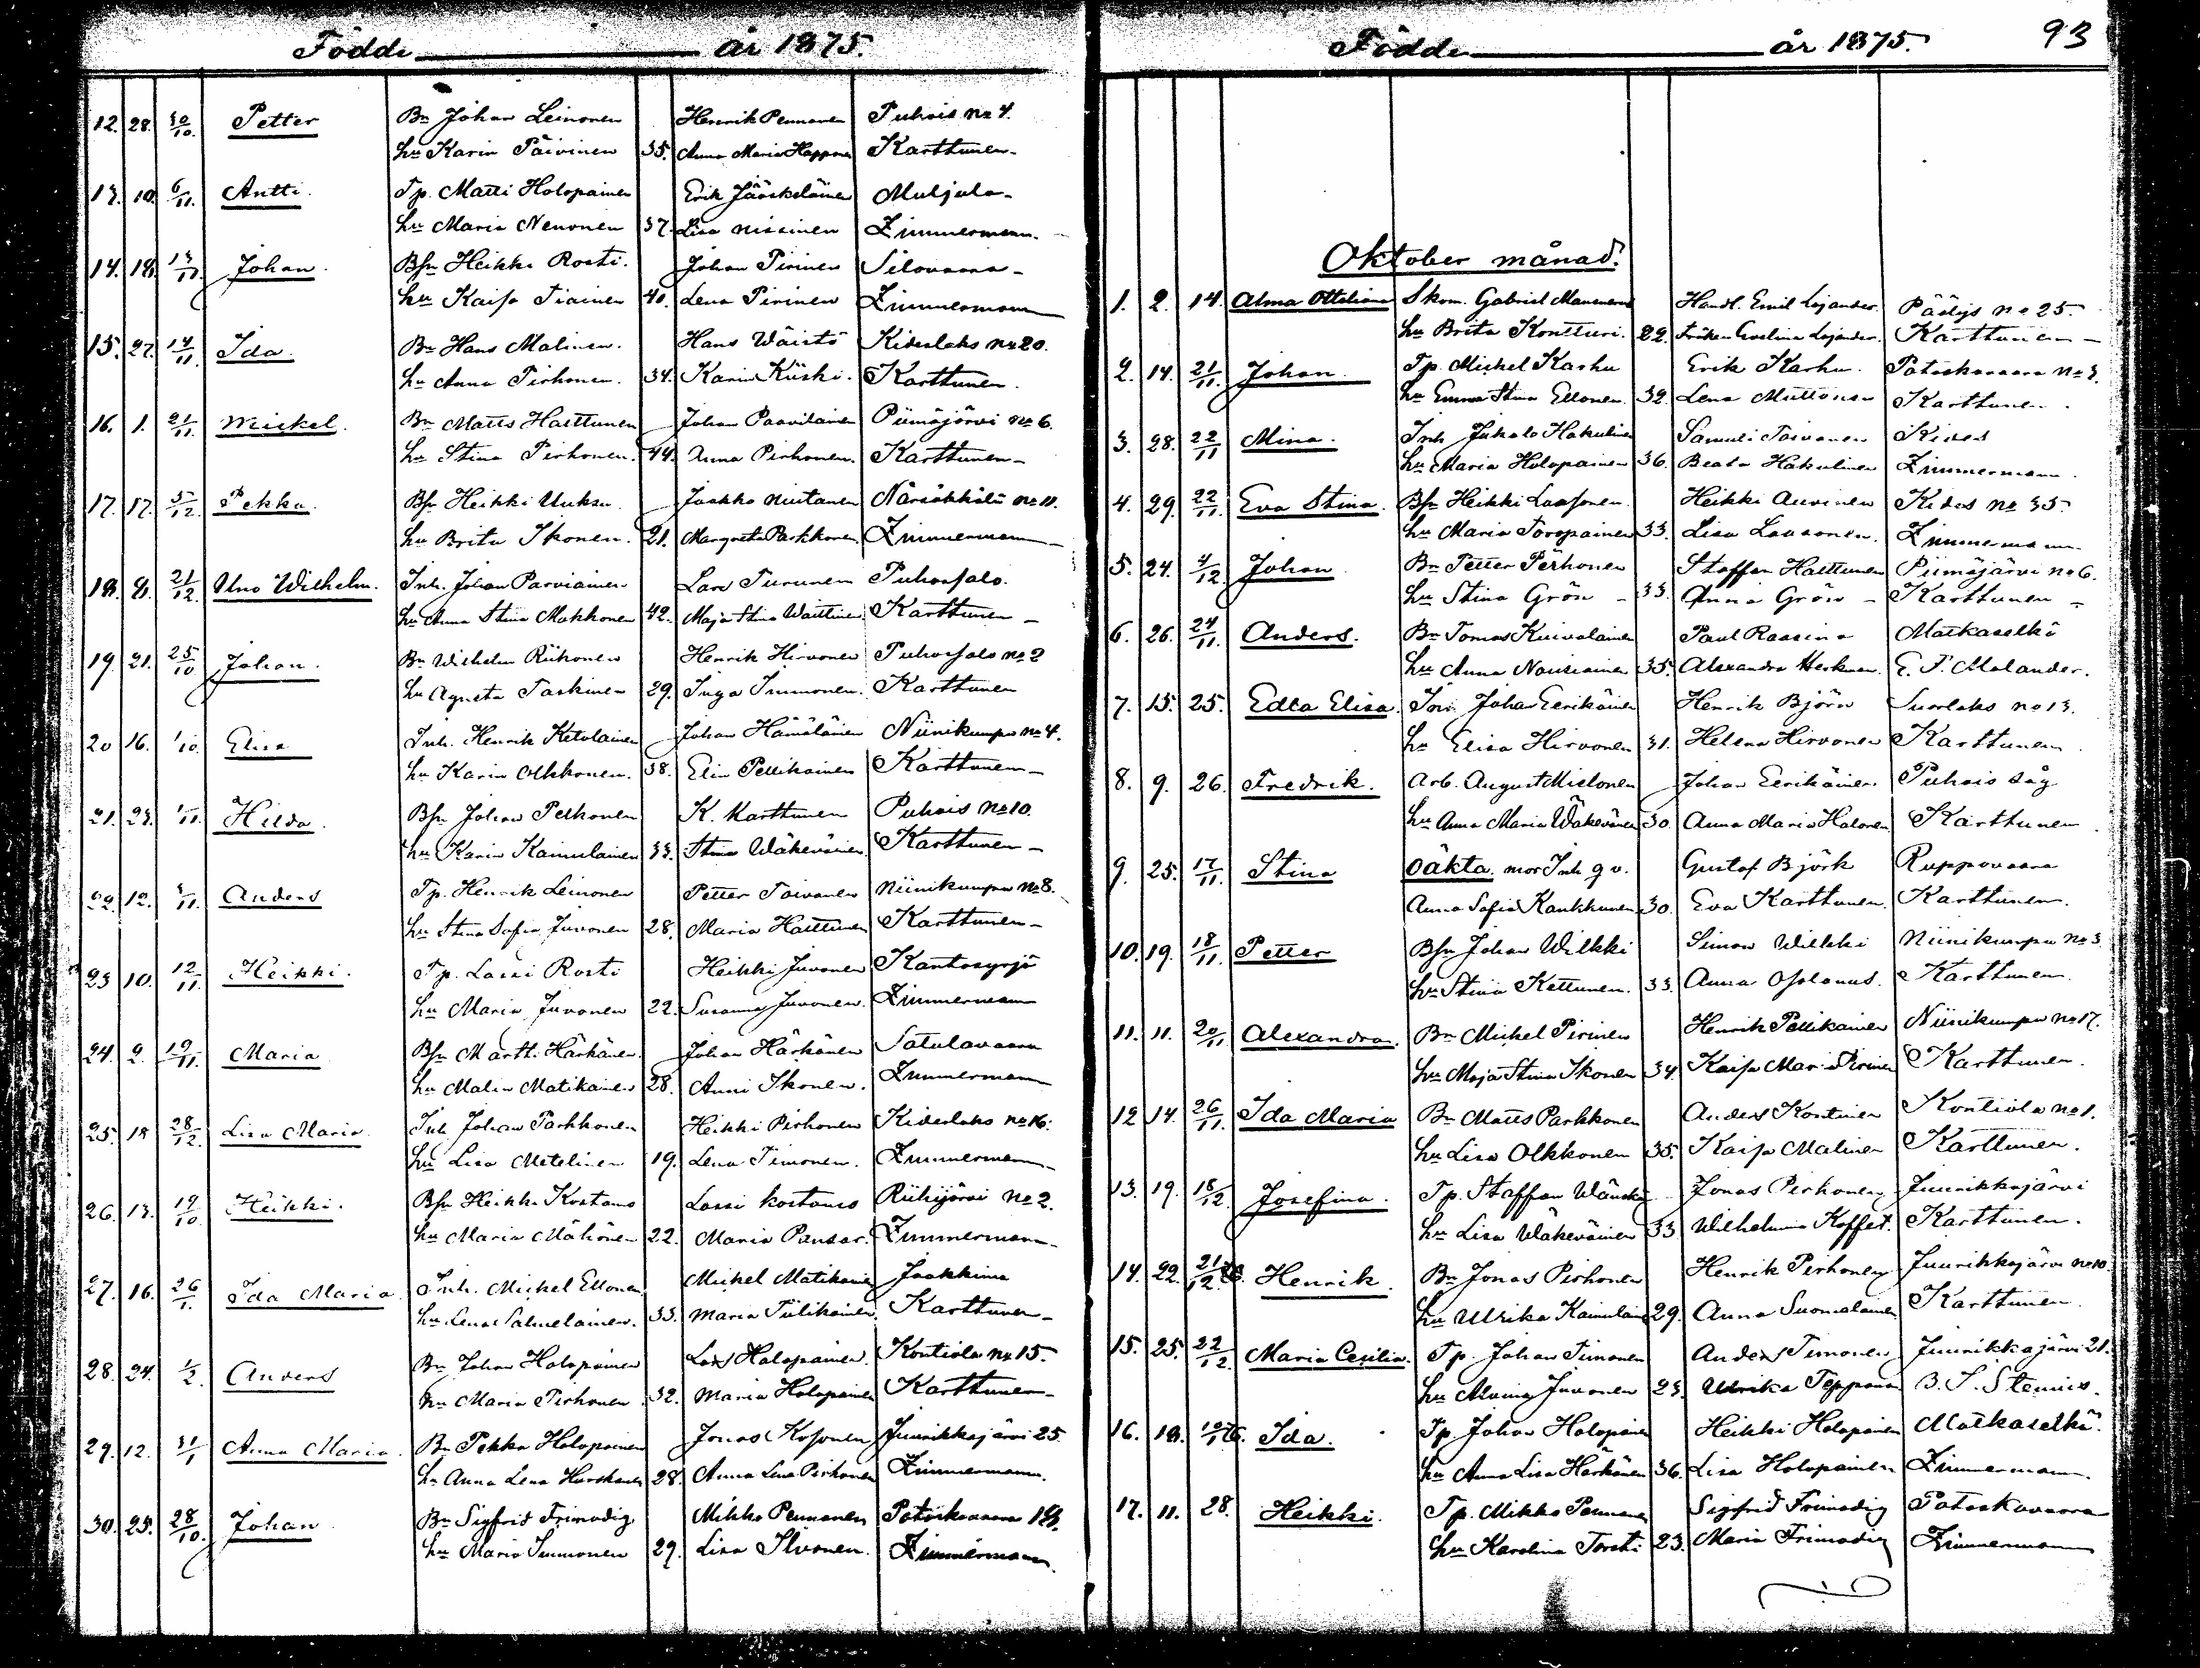 Födde år 1875.
12. 28. 30/10. Petter Bn Johan Leinonen Henrik Pennanen Puhois no 4.
hu Karin Päivinen 35. Anna Maria Happonen Karttunen
13. 10. 6/11. Antti. Tp. Matti Holopainen Erik Jääskeläinen Muljula
hu Maria Nenonen 37. Lisa Nissinen Zimmermann.
14. 18. 13/11. Johan. Bsn Heikki Rosti. Johan Pirinen Silovaara
hu Kaisa Tiainen 40. Lena Pirinen Zimmermann
15. 27. 14/11. Ida. Bn Hans Malinen. Hans Wäistö Kideslaks no 20.
hu Anna Pirhonen. 34. Karin Kiiski. Karttunen.
16. 1. 21/11. Mickel. Bn Matts Hasttunen Johan Paavilainen Piimäjärvi no 6.
hu Stina Pirhonen. 44. Anna Pirhonen. Karttunen
17. 17. 5/12. Pekka. Bsn Heikki Uuksu Jaakko Mustanen Närsäkkälä no 11.
hu Brita Ikonen. 21. Margreta Parkkonen Zimmermann
18. 8. 21/12. Uno Wilhelm. Inh. Johan Parviainen Lars Turunen Puhossalo.
hu Anna Stina Makkonen 42. Maja Stina Waittinen Karttunen
19. 21. 25/10 Johan. Bn Wilhelm Riikonen Henrik Hirvonen Puhossalo no 2
hu Agneta Taskinen 29. Inga Immonen. Karttunen
20 16. 1/10. Elisa Inh. Henrik Ketolainen Johan Hämäläinen Niinikumpu no 4.
hu Karin Olkkonen. 38. Elin Pellikainen Karttunen
21. 23. 1/11. Hilda. Bsn Johan Pelkonen K. Karttunen Puhois no 10.
hu Karin Kainulainen 33. Stina Wäkeväinen. Karttunen
22. 12. 5/11. Anders Tp. Henrik Leinonen Petter Toivanen Niinikumpu no 8.
hu Stina Sofia Juvonen 28. Maria Hasttunen Karttunen
23 10. 12/11. Heikki. Tp. Lassi Rosti Heikki Juvonen Kantosyrjä
hu Maria Juvonen 22. Susanna Juvonen. Zimmermann
24. 2. 19/11. Maria Bsn Martti Härkänen Johan Härkönen Satulavaara
hu Malin Matikainen 28. Anni Ikonen. Zimmermann
25. 18 28/12. Lisa Maria. Inh Johan Parkkonen Heikki Pirhonen Kideslaks no 16.
hu Lisa Metelinen 19. Lena Timonen. Zimmermann
26. 13. 19/10. Heikki. Bsn Heikki Kostamo Lassi Kostamo Riihijärvi no 2.
hu Maria Mähönen 22. Maria Pansar. Zimmermann
27. 16. 26/1. Ida Maria. Inh. Mickel Ellonen Mickel Matikainen Jaakkima
hu Lena Salmelainen. 33. Maria Tiilikainen. Karttunen
28. 24. 1/2. Anders Bn Johan Holopainen Lars Holopainen. Kontiola no 15.
hu Maria Pirhonen 32. Maria Holopainen Karttunen
29. 12. 31/1 Anna Maria. Bn Pekka Holopainen Jonas Kosonen Juurikkajärvi 25.
hu Anna Lena Hurskainen 28. Anna Lena Pirhonen Zimmermann.
30. 25. 28/10. Johan Bn Sigfrid Frimodig Mikko Pennanen Potoskavaara
hu Maria Immonen 29. Lisa Ilvonen. Zimmermann.
Födde år 1875. 93
Oktober månad.
1. 2. 14. Alma Ottiliana Skom. Gabriel Manninen Handl. Emil Lojander. Päätys no 25.
hu Brita Kontturi. 22. Fröken Evelina Lojander. Karttunen
2. 14. 21/11. Johan. Tp. Mickel Karhu Erik Karhu. Potoskavaara no 3.
hu Emma Stina Ellonen. 32. Lena Muttonen Karttunen.
3. 28. 22/11 Mina. Inh Juholo Hakulinen Samuli Toivanen Kides
hu Maria Holopainen 36. Beata Hakulinen Zimmermann.
4. 29. 22/11. Eva Stina. Bsn Heikki Laasonen. Heikki Auvinen Kides no 35.
hu Maria Toropainen 33. Lisa Laasonen. Zimmermann.
5. 24. 4/12. Johan Bn Petter Pirhonen Staffan Hasttunen Piimäjärvi no 6.
hu Stina Grön 33. Anna Grön Karttunen
6. 26. 24/11. Anders. Bn Tomas Kuivalainen Paul Raasina Matkaselkä
hu Anna Nousiainen 35. Alexandra Herkman. E. F. Malander.
7. 15. 25. Edla Elisa. Tori Johan Eerikäinen Henrik Björn Suorlaks no 13.
hu Elisa Hirvonen 31. Helena Hirvonen Karttunen
8. 9. 26. Fredrik. Arb. August Mielonen Johan Eerikäinen Puhois såg
hu Anna Maria Wäkevänen 30. Anna Maria Halonen Karttunen
9. 25. 17/11. Stina Oäkta. mor Inh qv. Gustaf Björk Ruppovaara
Anna Sofia Kaukkunen 30. Eva Karttunen. Karttunen.
10. 19. 18/11. Petter Bsn Johan Wilkki Simon Wilkki Niinikumpu no 3.
hu Stina Kettunen. 33. Anna Asplanus. Karttunen.
11. 11. 20/11 Alexandra. Bn Mickel Pirinen Henrik Pellikainen Niinikumpu no 17.
hu Maja Stina Ikonen 34. Kaisa Maria Pirinen Karttunen.
12 14. 26/11. Ida Maria Bn Matts Parkkonen Anders Kontinen Kontiola no 1.
hu Lisa Olkkonen 35. Kaisa Malinen Karttunen.
13. 19. 18/12. Josefina. Tp. Staffan Wänskä Jonas Pirhonen Juurikkajärvi
hu Lisa Wäkeväinen 33. Wilhelmina Koffert. Karttunen.
14. 22. 21/12. Henrik. Bn Jonas Pirhonen Henrik Pirhonen Juurikkajärvi no 10
hu Ulrika Kainulain 29. Anna Suomalainen Karttunen.
15. 25. 22/12. Maria Cecilia. Tp. Johan Timonen Anders Timonen Juurikkajärvi 21.
hu Juvonen 23. Ulrika Teppana B. S. Stenius.
16. 18. Ida. Tp Johan Holopainen Heikki Holopainen Matkaselkä.
hu Anna Lisa Härkönen 36. Lisa Holopainen Zimmermann.
17. 11. 28. Heikki. Tp. Mikko Pennanen Sigfrid Frimodig Potoskavaara
hu Karolina Torsti 23. Maria Frimodig Zimmermann